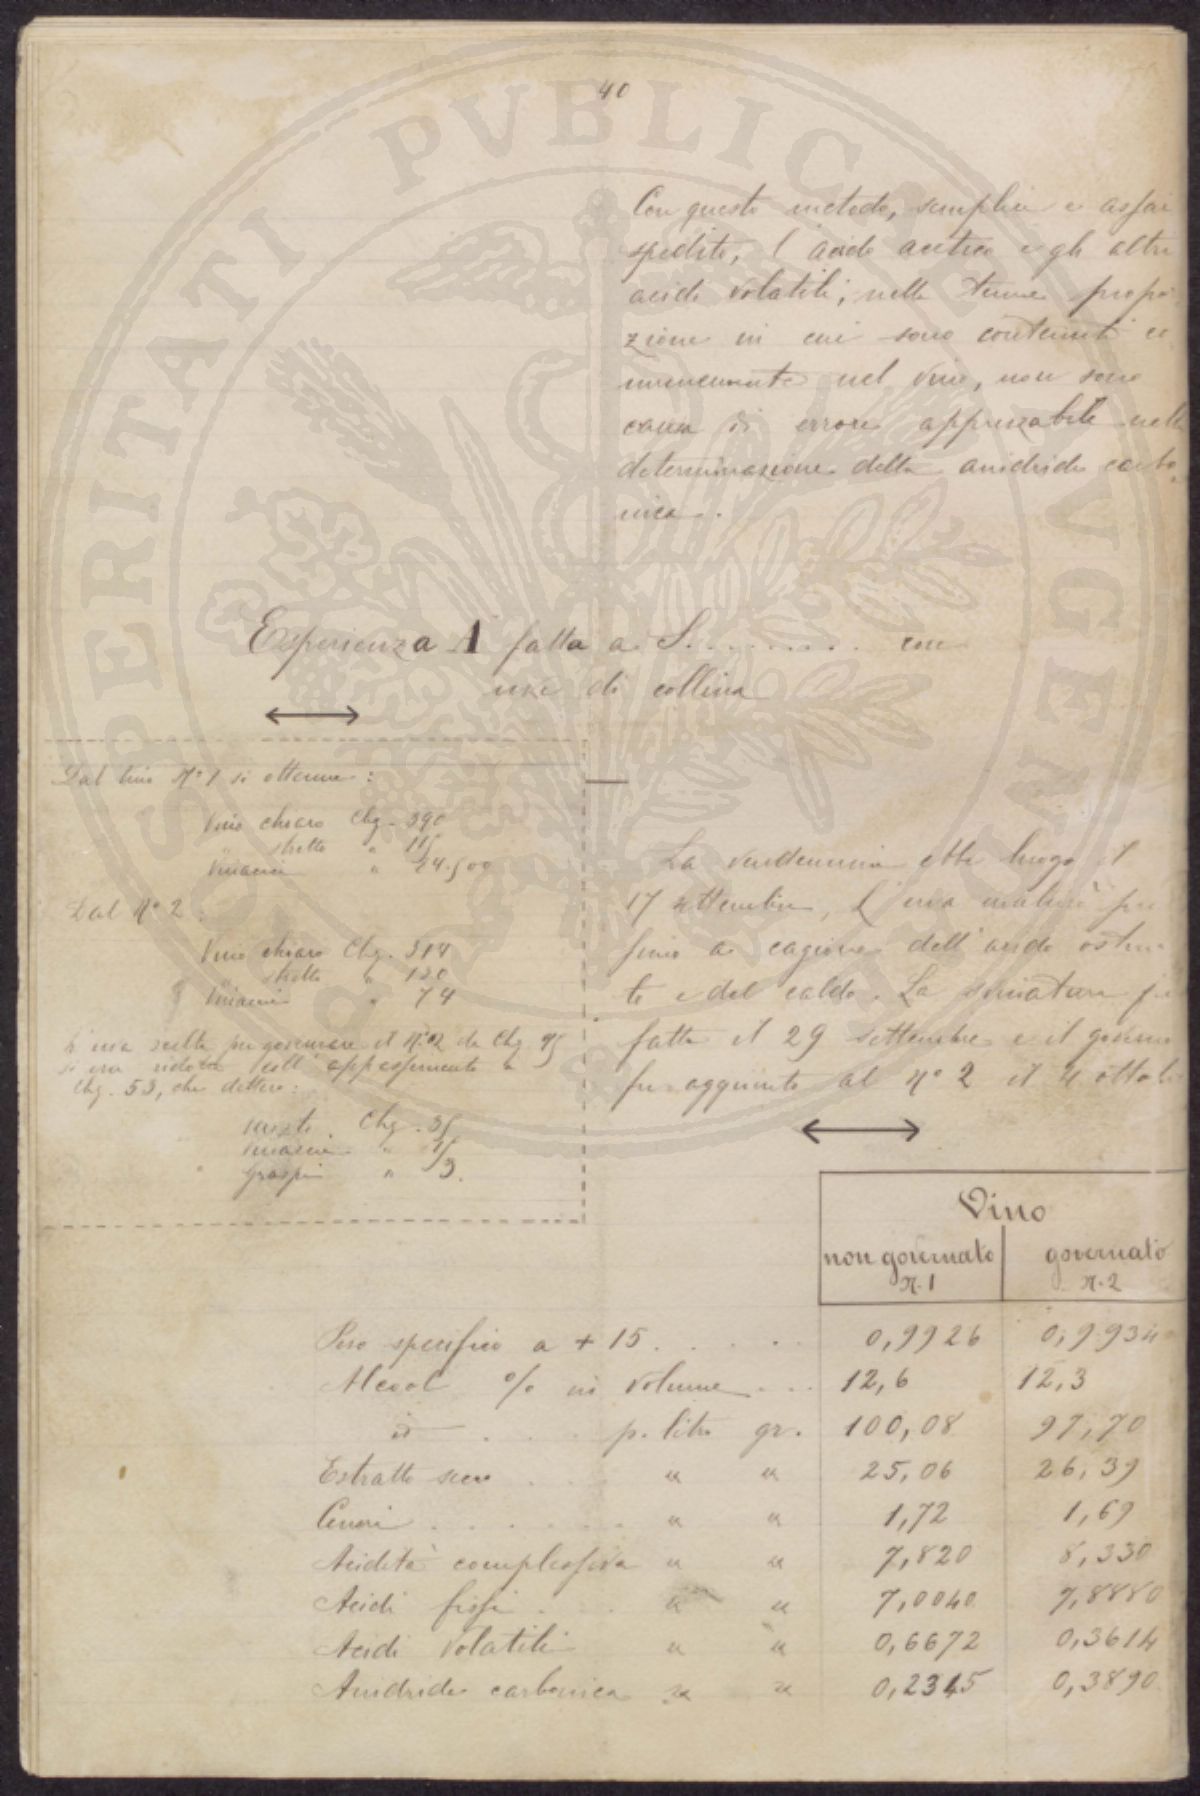 40
Con questo metodo, semplice e assai
spedito, l'acido acetico e gli altri
acidi volatili, nella tenue propor
zione in cui sono contenuti co
munemente nel vino, non sono
causa di errore apprezzabile nella
determinazione della anidride carbo
nica.
Esperienza A fatta a S. . . . . . . . . con
uve di collina
Dal tino Nº 1 si ottenne:
Vino chiaro Chg. 390
" stretto " 115
Vinaccie " 24.500
Dal Nº 2:
Vino chiaro Chg. 314
" stretto " 120
Vinaccie " 74
L'uva scelta per governare il Nº 2 da Chg. 95
si era ridotta coll'appassimento a
Chg. 53, che dettero:
mosto Chg. 35
Vinaccie " 15
Graspi " 3.
La vendemmia ebbe luogo il
17 settembre, L'uva maturò per
fino a cagione dell'arido esta
te e del caldo. La svinatura fu
fatta il 29 settembre e il governo
fu aggiunto al Nº 2 il 4 ottob
Vino
non governato governato
N. 1 N. 2
Peso specifico a + 15 . . . . 0,9926 0,9934
Alcool % in volume . . . 12,6 12,3
id . . . p. litro gr. 100,08 97,70
Estratto secco . . . " " 25,06 26,39
Ceneri . . . . . . " " 1,72 1,69
Acidità complessiva " " 7,820 8,330
Acidi fissi . . . " " 7,0040 7,8880
Acidi volatili " " 0,6672 0,3614
Anidride carbonica " " 0,2345 0,3890
PVBLICAE
PROSPERITATI
AVGENDAE